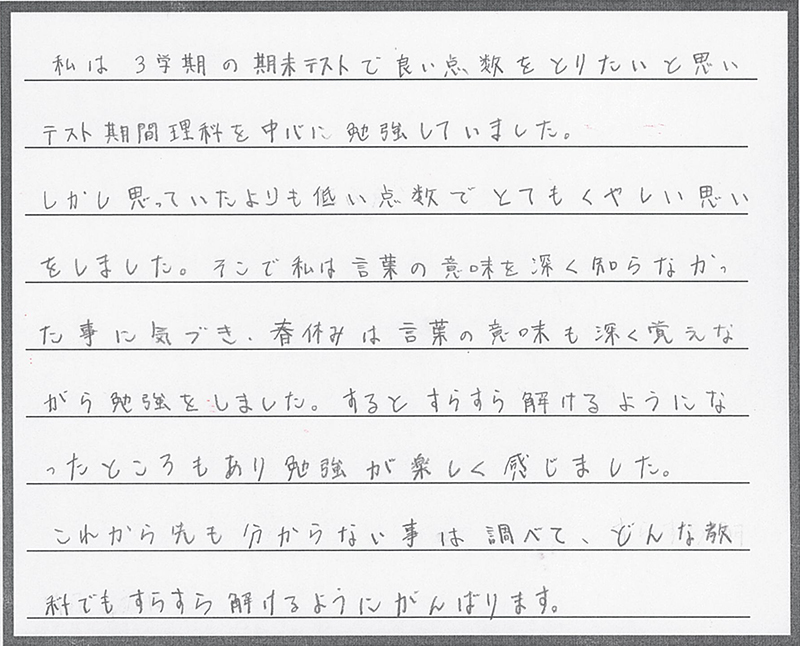 私は3学期の期末テストで良い点数をとりたいと思い
テスト期間理科を中心に勉強していました。
しかし思っていたよりも低い点数でとてもくやしい思い
をしました。そこで私は言葉の意味を深く知らなかっ
た事に気づき、春休みは言葉の意味も深く覚えな
がら勉強をしました。するとすらすら解けるようにな
ったところもあり勉強が楽しく感じました。
これから先も分からない事は調べて、どんな教
科でもすらすら解けるようにがんばります。